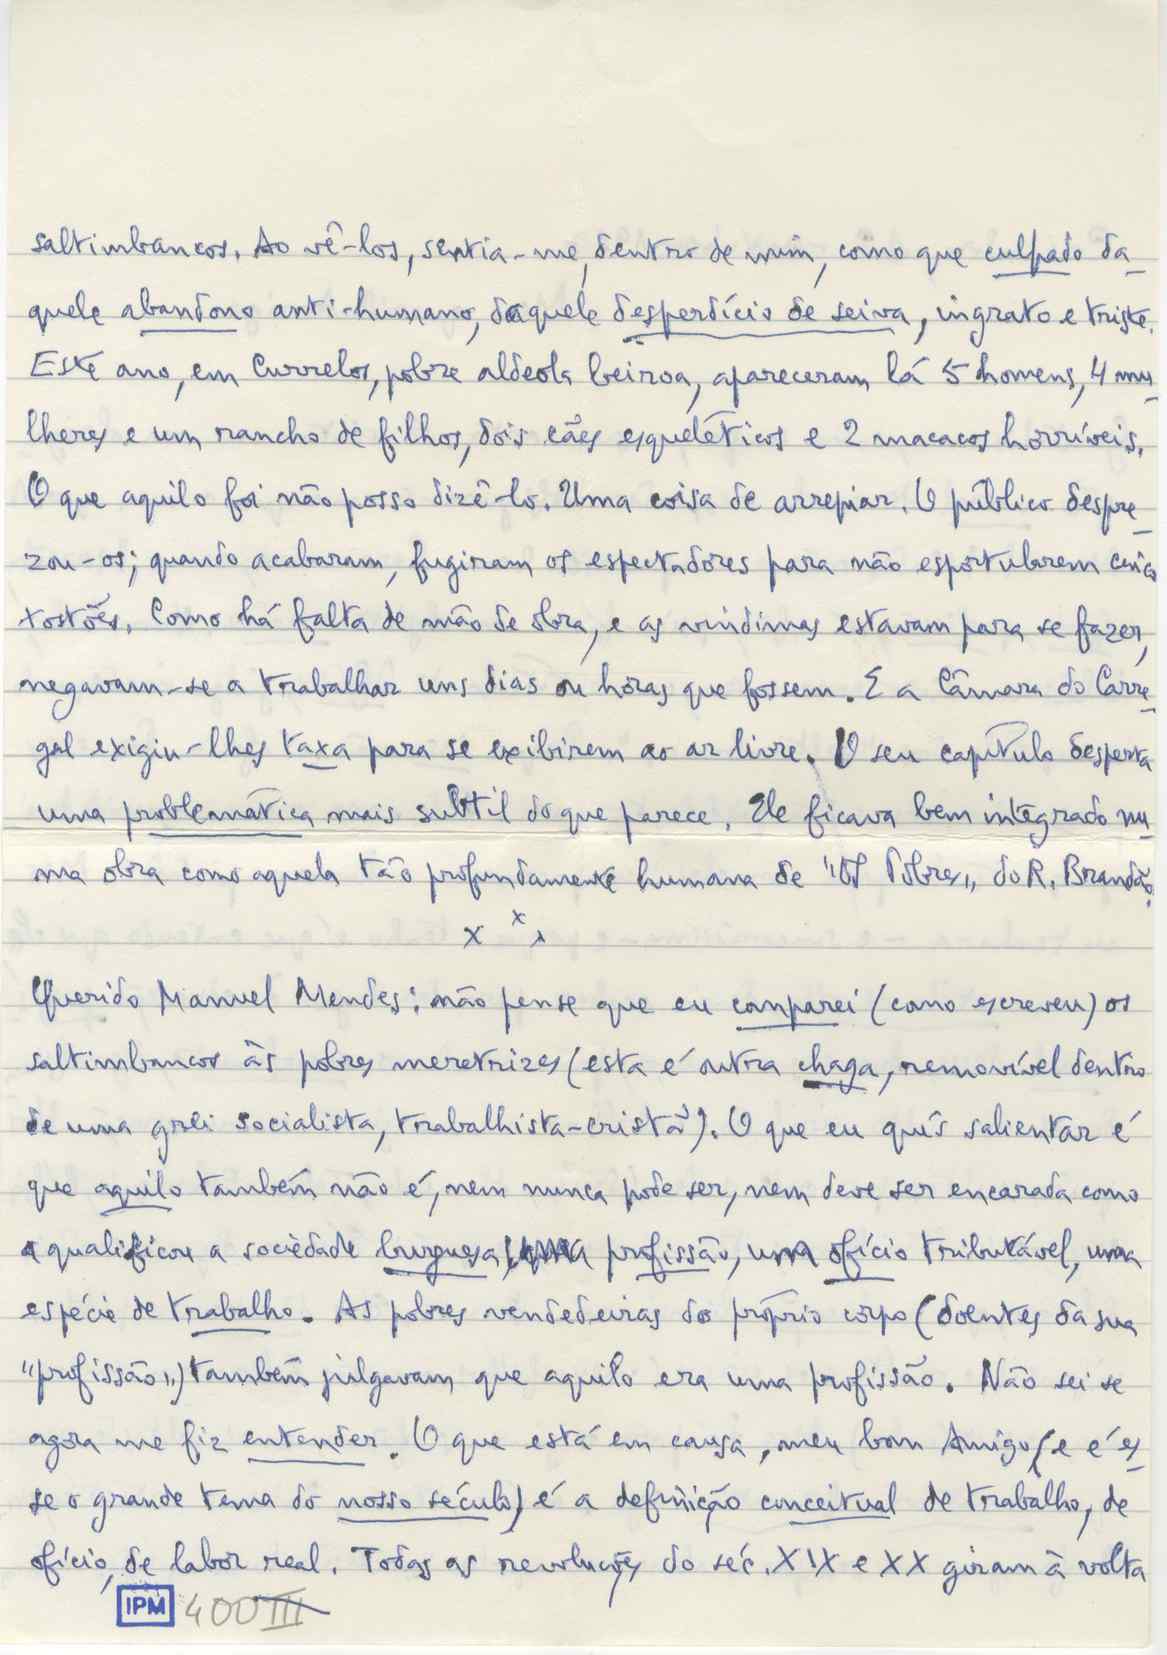 saltimbancos. Ao vê-los, sentia-me, dentro de mim, como que culpado da-
quele abandono anti-humano, daquele desperdício de seiva, ingrato e triste.
Este ano, em Currelos, pobre aldeola beiroa, apareceram lá 5 homens, 4 mu-
lheres e um rancho de filhos, dois cães esqueléticos e 2 macacos horríveis.
O que aquilo foi não posso dizê-lo. Uma coisa de arrepiar. O público despre-
zou-os; quando acabaram, fugiram os espectadores para não esportularem cinco
tostões. Como há falta de mão de obra, e as vindimas estavam para se fazer,
negavam-se a trabalhar uns dias ou horas que fossem. E a Câmara do Carre-
gal exigiu-lhes taxa para se exibirem ao ar livre. O seu capítulo desperta
uma problemática mais subtil do que parece. Ele ficava bem integrado nu-
ma obra como aquela tão profundamente humana de "Os Pobres", do R. Brandão.
x x x
Querido Manuel Mendes: não pense que eu comparei (como escreveu) os
saltimbancos às pobres meretrizes (esta é outra chaga, removível dentro
de uma grei socialista, trabalhista-cristã). O que eu quis salientar é
que aquilo também não é, nem nunca pode ser, nem deve ser encarada como
a qualificou a sociedade burguesa, uma profissão, um ofício tributável, uma
espécie de trabalho. As pobres vendedeiras do próprio corpo (doentes da sua
"profissão") também julgavam que aquilo era uma profissão. Não sei se
agora me fiz entender. O que está em causa, meu bom Amigo (e é es-
se o grande tema do nosso século) é a definição conceitual de trabalho, de
ofício, de labor real. Todas as revoluções do séc. XIX e XX giram à volta
IPM 400 III